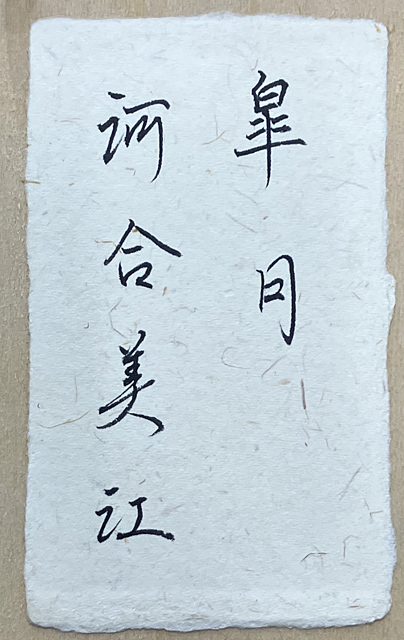 皐月
河合美江